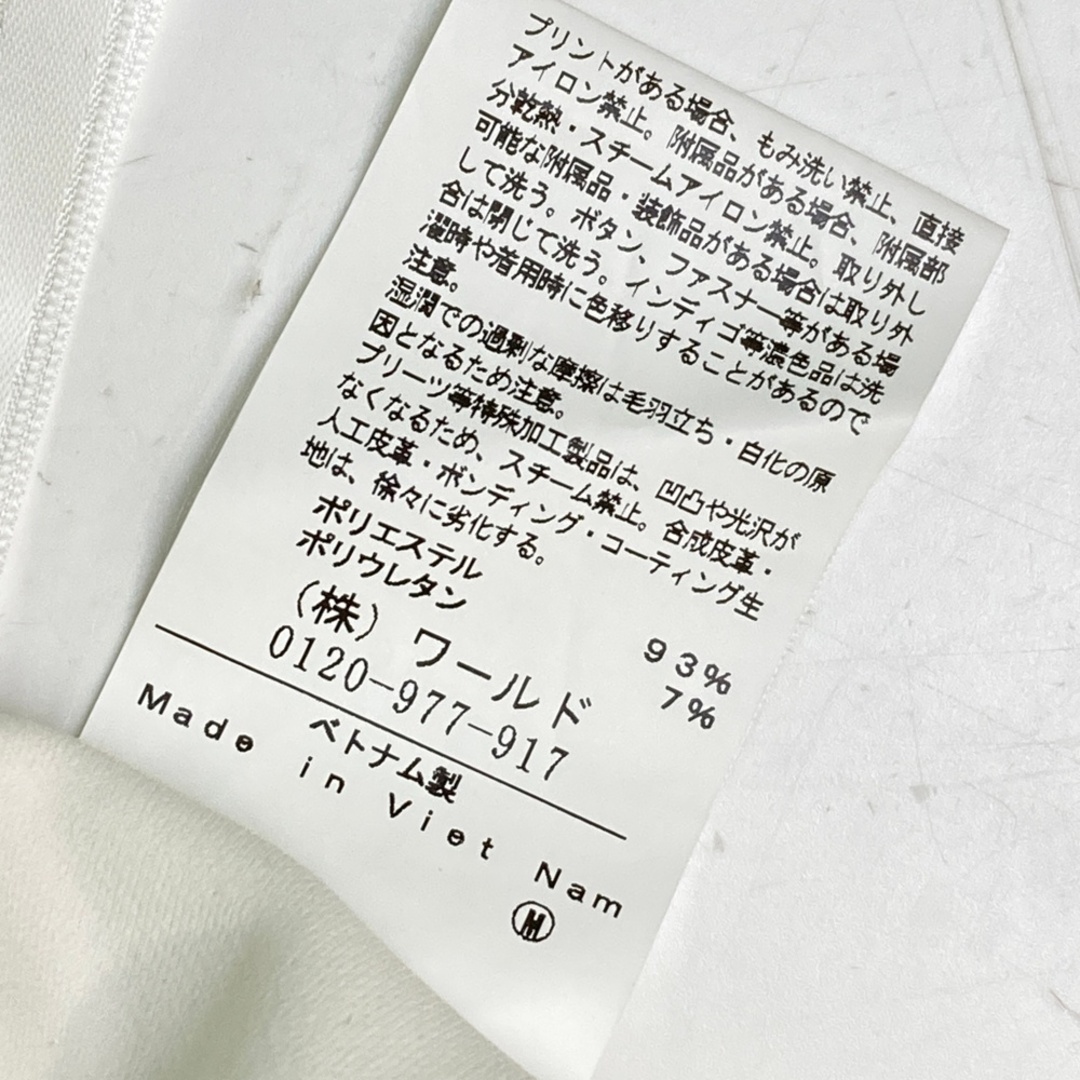 プリントがある場合、もみ洗い禁止、直接
アイロン禁止。附属品がある場合、附属部
分乾熱・スチームアイロン禁止。取り外し
可能な附属品・装飾品がある場合は取り外
して洗う。ボタン、ファスナー等がある場
合は閉じて洗う。インディゴ等濃色品は洗
濯時や着用時に色移りすることがあるので
注意。
湿潤での過剰な摩擦は毛羽立ち・白化の原
因となるため注意。
プリーツ等特殊加工製品は、凹凸や光沢が
なくなるため、スチーム禁止。合成皮革・
人工皮革・ボンディング・コーティング生
地は、徐々に劣化する。
ポリエステル 93%
ポリウレタン 7%
(株) ワールド
0120-977-917
ベトナム製
Made in Viet Nam
M